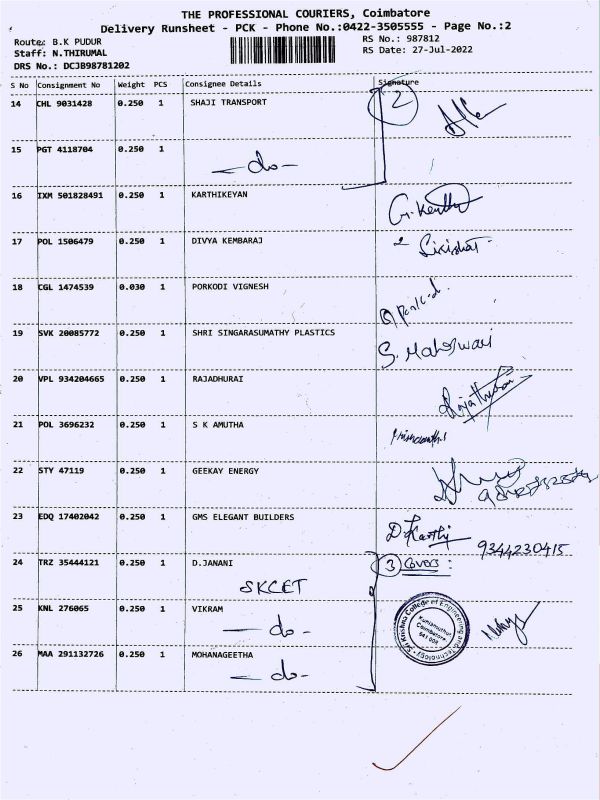 THE PROFESSIONAL COURIERS, Coimbatore
Delivery Runsheet - PCK - Phone No.:0422-3505555 - Page No.:2
Route: B.K PUDUR
Staff: N.THIRUMAL
DRS No.: DCJB98781202
RS No.: 987812
RS Date: 27-Jul-2022
S No Consignment No Weight PCS Consignee Details Signature
14 CHL 9031428 0.250 1 SHAJI TRANSPORT 2
15 PGT 4118704 0.250 1
- do -
16 IXM 501828491 0.250 1 KARTHIKEYAN
17 POL 1506479 0.250 1 DIVYA KEMBARAJ
18 CGL 1474539 0.030 1 PORKODI VIGNESH
19 SVK 20085772 0.250 1 SHRI SINGARASUMATHY PLASTICS
S. Maheswari
20 VPL 934204665 0.250 1 RAJADHURAI
21 POL 3696232 0.250 1 S K AMUTHA
22 STY 47119 0.250 1 GEEKAY ENERGY
23 EDQ 17402042 0.250 1 GMS ELEGANT BUILDERS
D. Karthi 9344230415
24 TRZ 35444121 0.250 1 D.JANANI 3 covers :
SKCET
25 KNL 276065 0.250 1 VIKRAM
- do -
Sri Krishna College of Engineering and Technology
Kuniamuthur
Coimbatore
641 008
26 MAA 291132726 0.250 1 MOHANAGEETHA
- do -